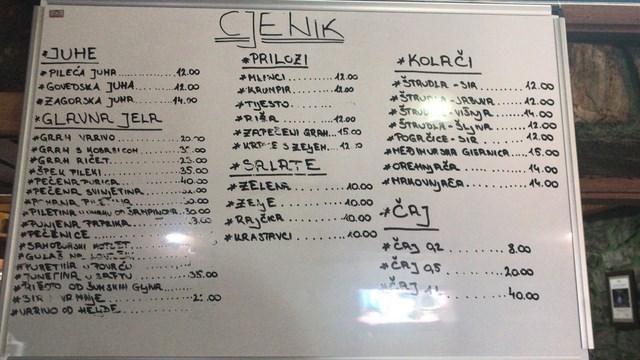 CJENIK
*JUHE
*PILEĆA JUHA............12.00
*GOVEDSKA JUHA.........12.00
*ZAGORSKA JUHA.........14.00
*GLAVNA JELA
*GRAH VARIVO
*GRAH S KOBASICOM
*GRAH RIČET
*ŠPEK FILEKI.........35.00
*PEČENA PURICA.........40.00
*PEČENA SVINJETINA
PILETINA ŠAMPINJONA.30.00
*PUNJENA PAPRIKA
*PEČENICE
*SAMOBORSKI KOTLET
*GULAŠ
*PURETINA U POVRĆU
*JUNETINA U SAFTU.........35.00
OD ŠUMSKIH GLJIVA
*SIR I VRHNJE
*VARIVO OD HELJDE
*PRILOZI
*MLINCI.........12.00
*KRUMPIR.........12.00
*TIJESTO.........
*RIŽA.........12.00
*ZAPEČENI GRAH...15.00
*SALATE
*ZELENA.........10.00
*ZELJE.........10.00
*RAJČICA.........10.00
*KRASTAVCI.........10.00
*KOLAČI
*ŠTRUDLA-SIR.........12.00
*ŠTRUDLA-JABUKA.........12.00
*ŠTRUDLA-VIŠNJA.........14.00
*ŠTRUDLA-ŠLJIVA.........12.00
*POGAČICE-SIR.........12.00
*MEĐIMURSKA GIBANICA.....15.00
*OREHNJAČA.........14.00
*MAKOVNJAČA.........14.00
*ČAJ
*ČAJ 0,2.........8.00
*ČAJ 0,5.........20.00
*ČAJ 1L.........40.00